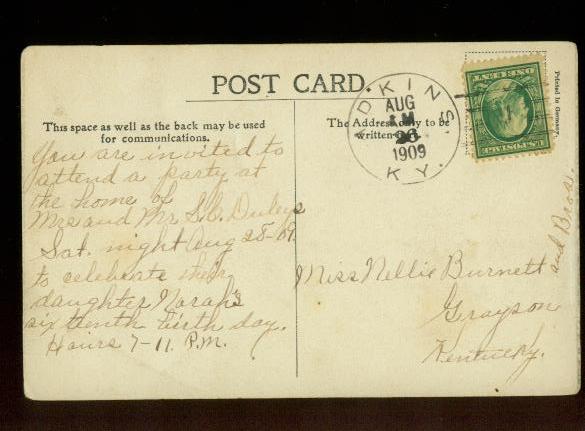 POST CARD.
This space as well as the back may be used
for communications.
You are invited to
attend a party at
the home of
Mrs and Mr. S.C. Duley's
Sat. night Aug 28-09.
to celebrate their
daughter Norah's
sixteenth birth day.
Hours 7-11. P.M.
The Address only to be
written
DKINS.
KY.
AUG
26
1909
ONE CENT
Printed in Germany.
Miss Nellie Burnett
and Bros.
Grayson
Kentucky.